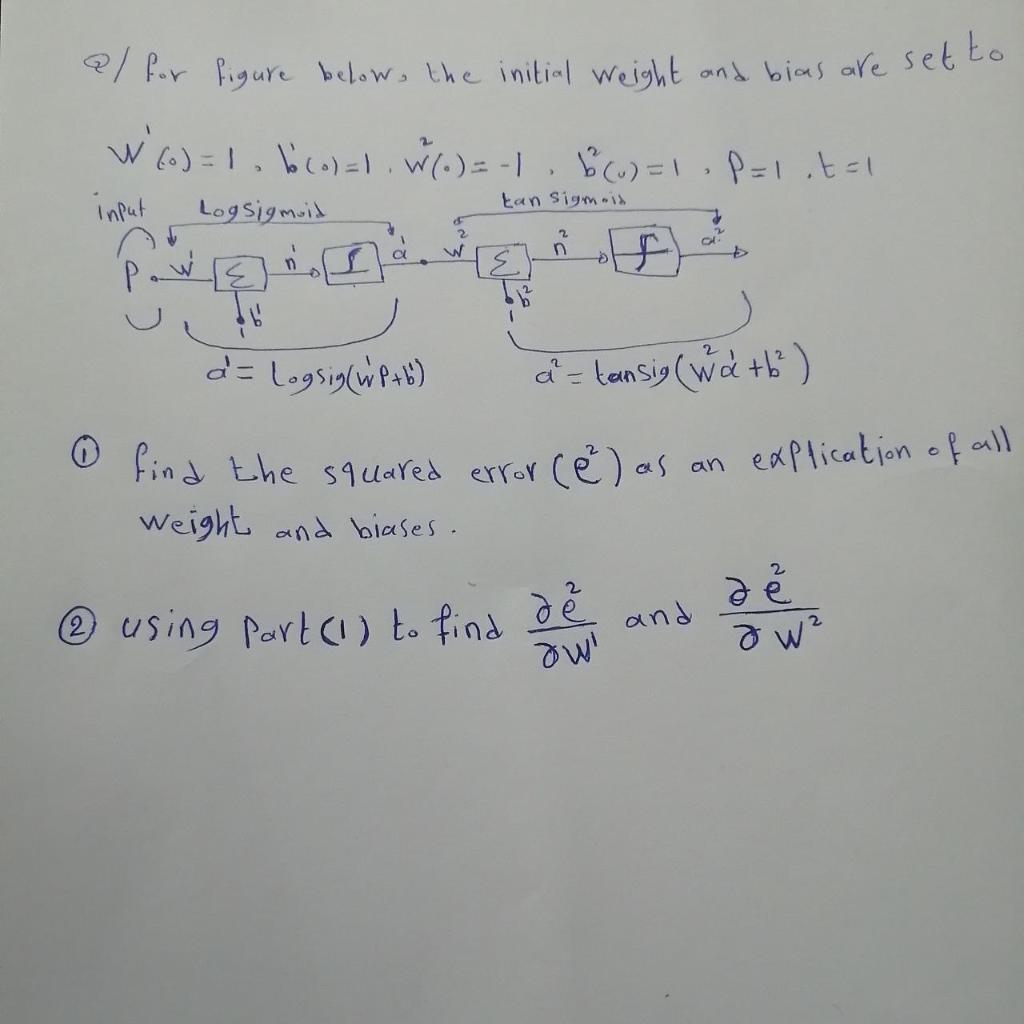 Q/ for figure below, the initial weight and bias are set to
W¹(0)=1, b¹(0)=1, W²(0)=-1, b²(0)=1, P=1, t=1
input Logsigmoid tan sigmoid
P W¹ Σ n¹ a¹ W² Σ n² a²
b¹ b²
1 1
a¹ = Logsig(W¹P+b¹) a² = tansig(W²a¹+b²)
① find the squared error (e²) as an explication of all
weight and biases.
② using Part(1) to find ∂e²/∂W¹ and ∂e²/∂W²